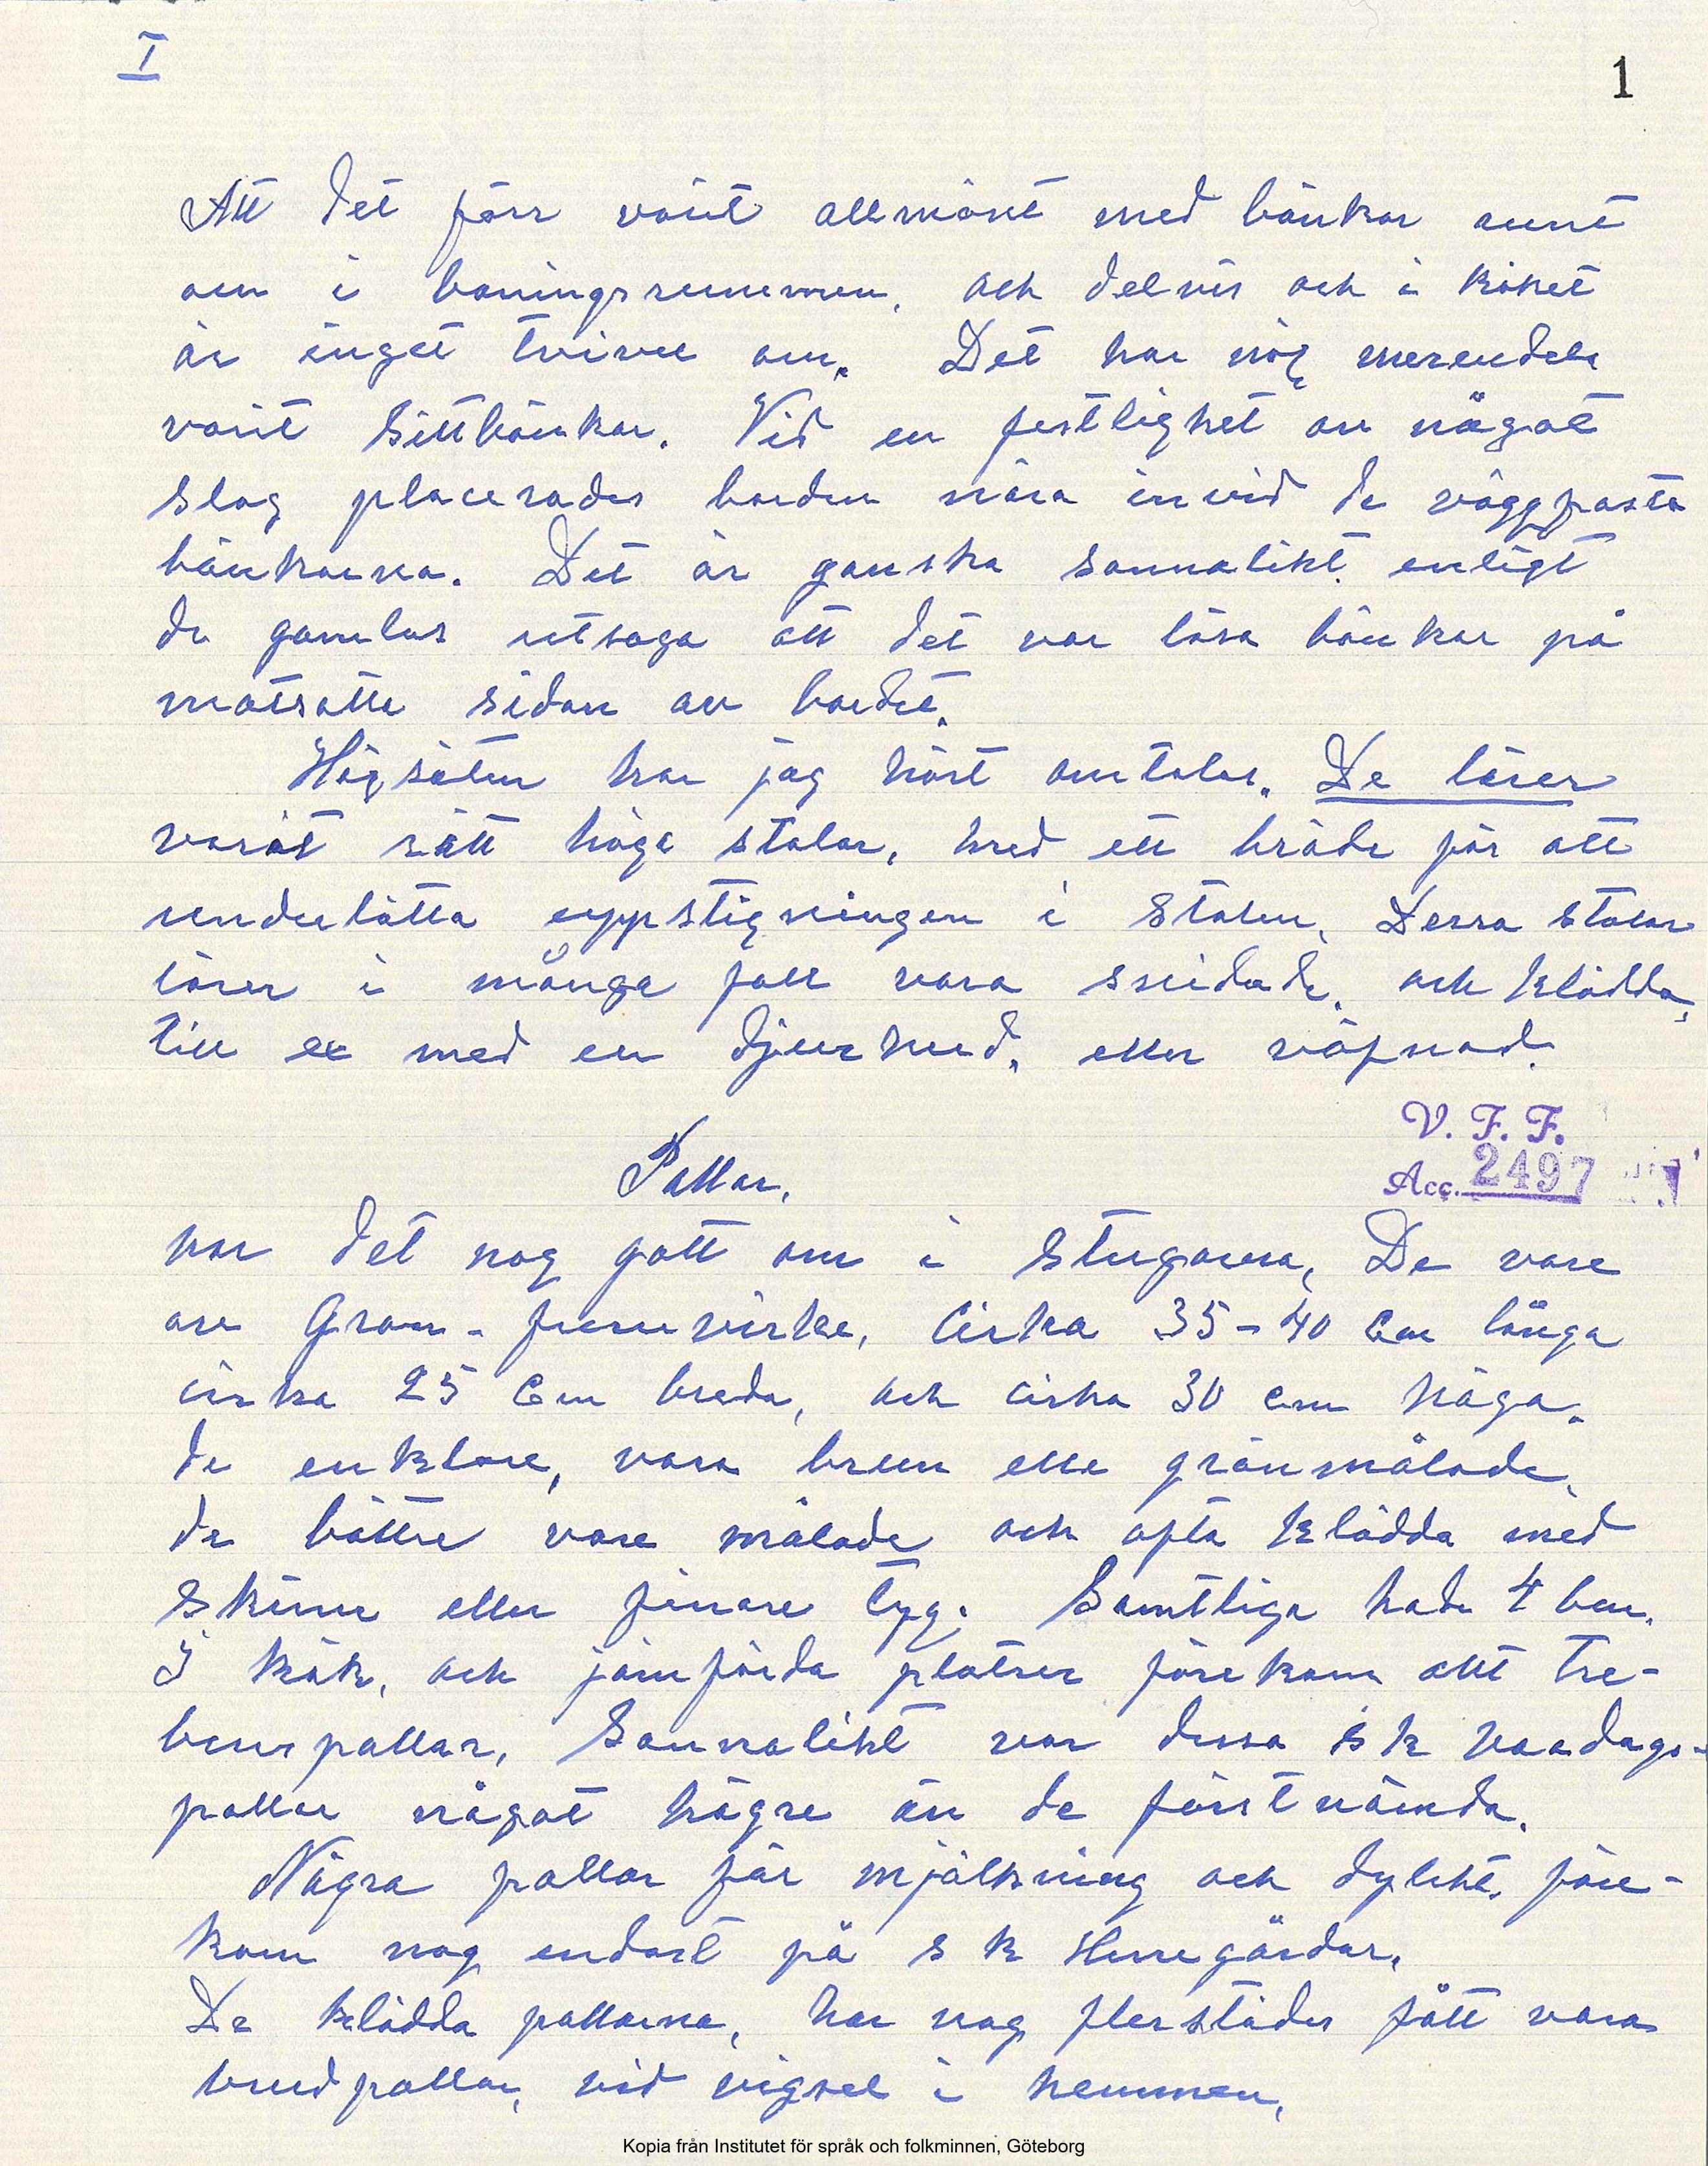 I
1
Att det förr varit allmänt med bänkar runt
om i boningsrummen, och delvis och i köket
är inget tvivel om. Det har nog merendels
varit sittbänkar. Vid en festlighet av något
slag placerades borden nära invid de väggfasta
bänkarna. Det är ganska sannolikt enligt
de gamlas utsaga att det var lösa bänkar på
motsatte sidan av bordet.
Högsäten har jag hört omtalas. De lärer
varit rätt höga stolar, med ett bräde för att
underlätta uppstigningen i stolen. Dessa stolar
lärer i många fall vara snidade, och klädda,
till ex med en djurhud, eller väfnad.
V. F. F.
Acc. 2497
Pallar,
var det nog gott om i stugorna, De vore
av Gran- furuvirke, Cirka 35-40 Cm långa
cirka 25 Cm breda, och cirka 30 cm höga.
de enklare, vara brun elle grönmålade,
de bättre vore målade och ofta klädda med
skinn eller finare tyg. Samtliga hade 4 ben.
I kök, och jämförda platser förekom att tre-
benspallar, Sannolikt var dessa s k vardags-
pallar något högre än de förstnämda.
Några pallar för mjölkning och dylikt, före-
kom nog endast på s k Herregårdar.
De klädda pallarna, har nog flerstädes fått vara
brudpallar, vid vigsel i hemmen,
Kopia från Institutet för språk och folkminnen, Göteborg